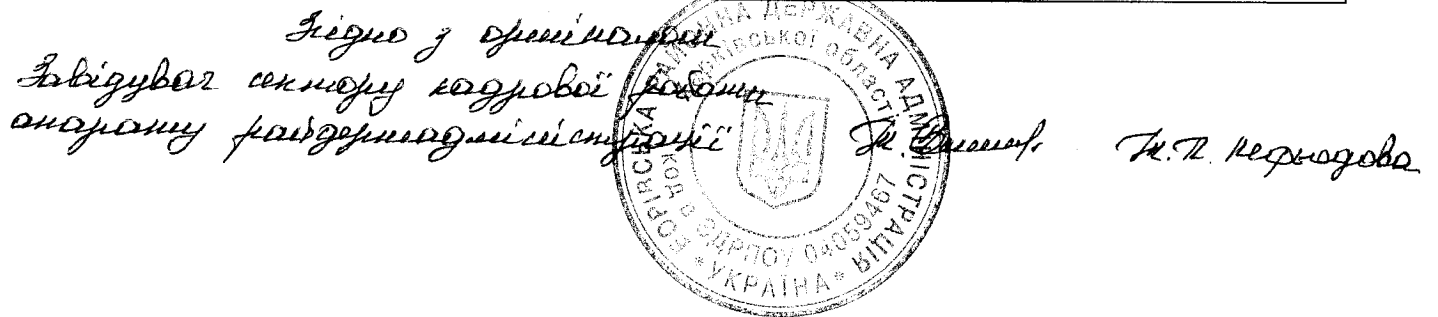 Згідно з оригіналом
Завідувач сектору кадрової роботи
апарату райдержадміністрації Т.П. Нефьодова
РАЙОННА ДЕРЖАВНА АДМІНІСТРАЦІЯ
Харківської області
Код в ЄДРПОУ 04059467
* УКРАЇНА *